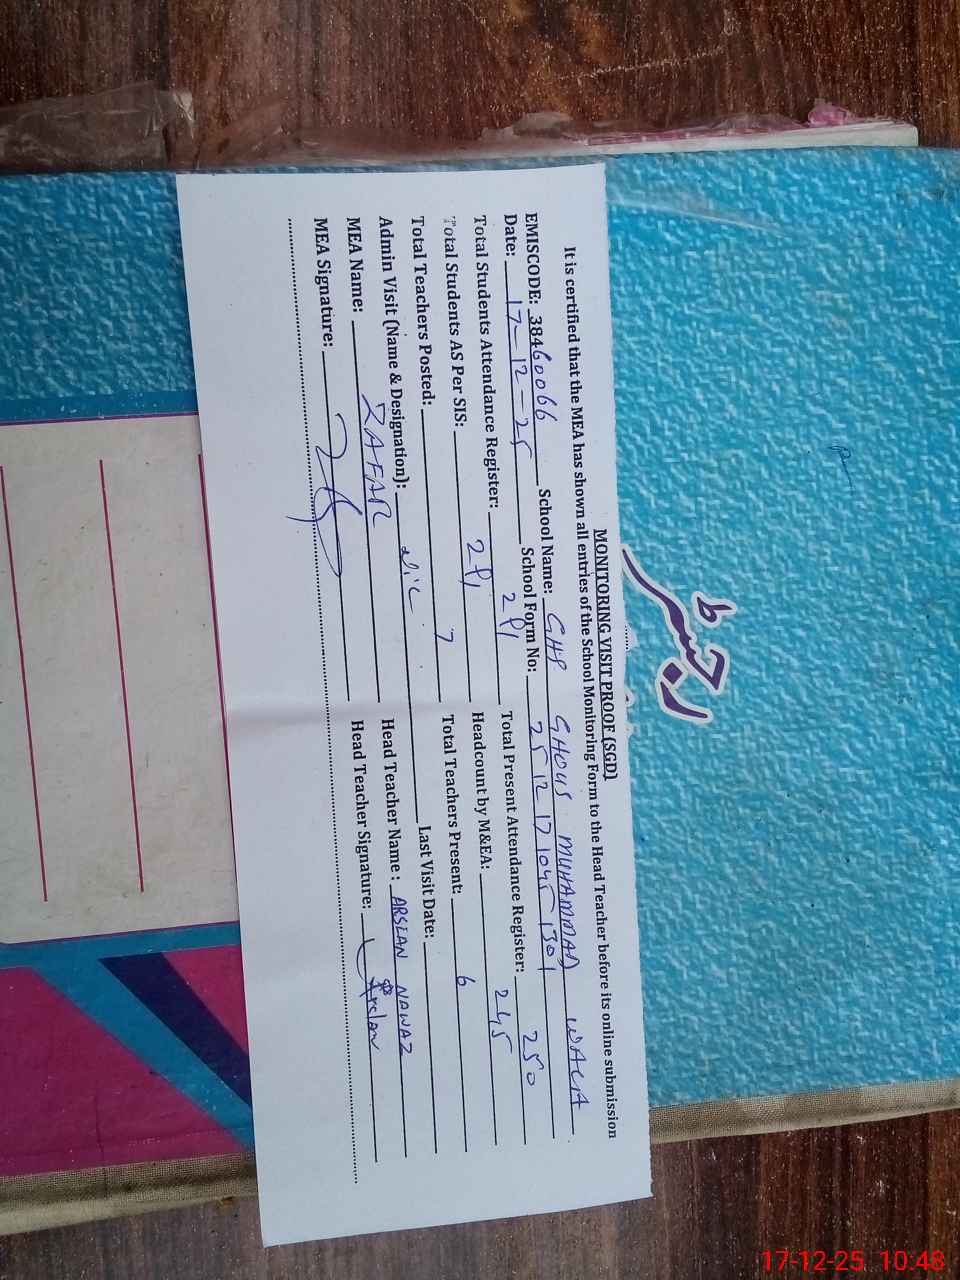 رجسٹر
MONITORING VISIT PROOF (SGD)
It is certified that the MEA has shown all entries of the School Monitoring Form to the Head Teacher before its online submission
EMISCODE: 38460066 School Name: GHS GHOUS MUHAMMAD WALA
Date: 17-12-25 School Form No: 251217 1045 1301
Total Students Attendance Register: 281 Total Present Attendance Register: 250
Total Students AS Per SIS: 281 Headcount by M&EA: 245
Total Teachers Posted: 7 Total Teachers Present: 6
Admin Visit (Name & Designation): Last Visit Date:
MEA Name: ZAFAR Head Teacher Name : ARSLAN NAWAZ
MEA Signature: Head Teacher Signature: Arslan
17-12-25 10:48